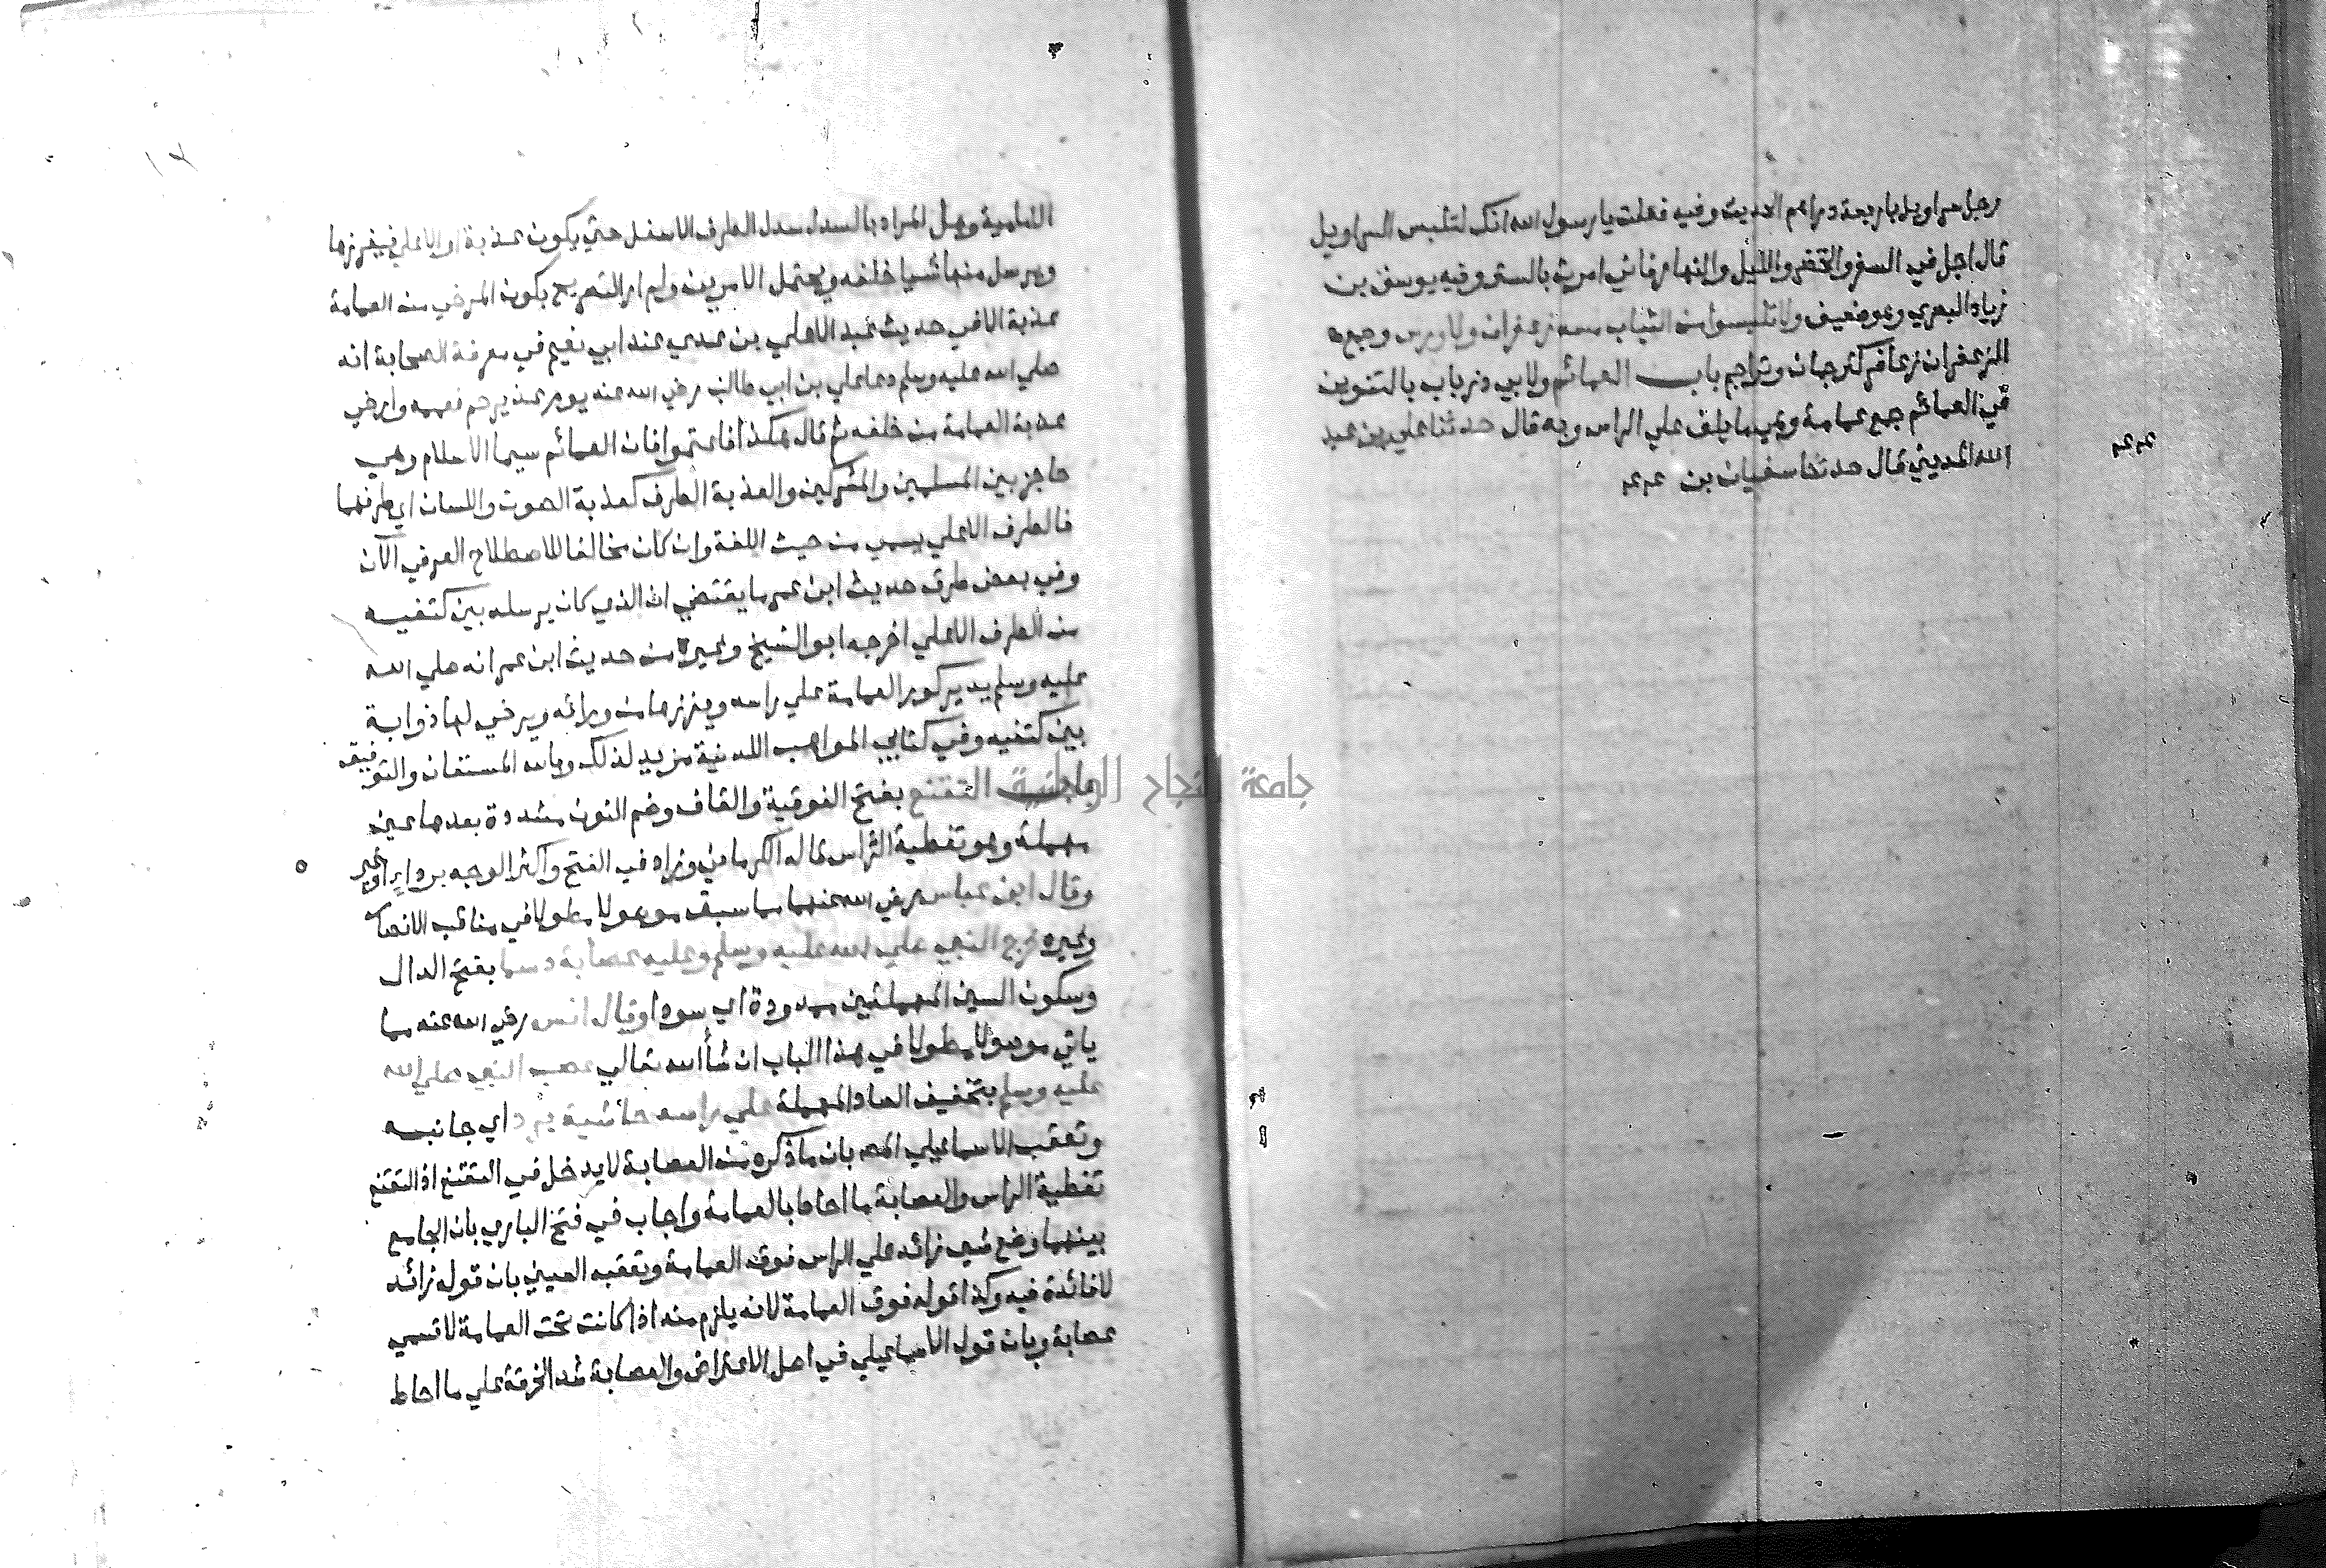 رجل سراويل باربعة دراهم الحديث وفيه فقلت يا رسول الله انك لتلبس السراويل
قال اجل في السفر والحضر والليل والنهار فاني امرت بالستر وفيه يوسف بن
زياد البصري وهو ضعيف ولا تلبسوا من الثياب مسه زعفران ولا ورس وجمع
الزعفران زعافر كترجمان وتراجم باب العمائم ولابي ذر باب بالتنوين
في العمائم جمع عمامة وهي ما يلف علي الراس وبه قال حدثنا علي بن عبد
الله المديني قال حدثنا سفيان بن
١٣
الشامية وهل المراد بالسدل سدل الطرف الاسفل حتي يكون عذبة او الاعلي فيغرزها
ويرسل منها شيا خلفه ويحتمل الامرين ولم ار التصريح بكون المرخي من العمامة
عذبة الا في حديث عبد الاعلي بن عدي عند ابي نعيم في معرفة الصحابة انه
صلي الله عليه وسلم دعا علي بن ابي طالب رضي الله عنه يوم غدير خم فعممه وارخي
عذبة العمامة من خلفه ثم قال هكذا فاعتموا فان العمائم سيما الاسلام وهي
حاجز بين المسلمين والمشركين والعذبة الطرف كعذبة الصوت واللسان اي طرفهما
فالطرف الاعلي يسمي من حيث اللغة وان كان مخالفا للاصطلاح العرفي الآن
وفي بعض طرق حديث ابن عمر ما يقتضي ان الذي كان يرسله بين كتفيه
من الطرف الاعلي اخرجه ابو الشيخ وغيره من حديث ابن عمر انه صلي الله
عليه وسلم يدير كور العمامة علي راسه ويغرزها من ورائه ويرخي لها ذوابة
بين كتفيه وفي كتابي المواهب اللدنية مزيد لذلك وبالله المستعان والتوفيق
باب التقنع بفتح الفوقية والقاف وضم النون مشددة بعدها عين
مهملة وهو تغطية الراس قاله الكرماني وزاد في الفتح واكثر الوجه برداء او غيره
وقال ابن عباس رضي الله عنهما مما سبق موصولا مطولا في مناقب الانصار
وغيره خرج النبي صلي الله عليه وسلم وعليه عصابة دسما بفتح الدال
وسكون السين المهملتين ممدودة اي سودا وقال انس رضي الله عنه مما
ياتي موصولا مطولا في هذا الباب ان شأ الله تعالي عصب النبي صلي الله
عليه وسلم بتخفيف الصاد المهملة علي راسه حاشية برد اي جانبه
وتعقب الاسماعيلي المص بان ما ذكره من العصابة لا يدخل في التقنع اذ التقنع
تغطية الراس والعصابة ما احاط بالعمامة واجاب في فتح الباري بان الجامع
بينهما وضع شي زائد علي الراس فوق العمامة وتعقبه العيني بان قول زائد
لا فائدة فيه وكذا قوله فوق العمامة لانه يلزم منه اذا كانت تحت العمامة لا تسمي
عصابة وبان قول الاسماعيلي في اصل الاعتراض والعصابة شد الخرقة علي ما احاط
جامعة النجاح الوطنية